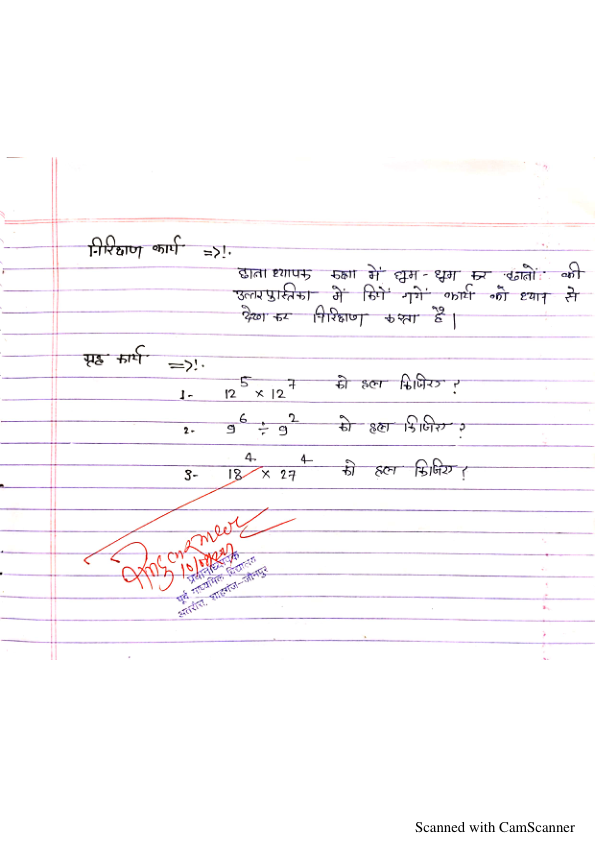 निरिक्षण कार्य =>!.
छाता ध्यापक कक्षा में घुम-घुम कर छातों की
उत्तरपुस्तिका में किये गये कार्य को ध्यान से
देखकर निरिक्षण करता है।
गृह कार्य =>!.
1- 12⁵ × 12⁷ को हल किजिए?
2- 9⁶ ÷ 9² को हल किजिए?
3- 18⁴ × 27⁴ को हल किजिए?
प्रधानाध्यापक
पूर्व माध्यमिक विद्यालय
शाहगंज-जौनपुर
Scanned with CamScanner